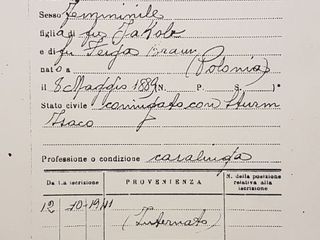 Sesso Femminile
figlia di fu Jakob
e di fu Feiga Braun
nat o a (Polonia)
il 8 Maggio 1889 (N. P. S. )°
Stato civile coniugata con Sturm
Isaco
Professione o condizione casalinga
Data iscrizione PROVENIENZA N. della posizione relativa alla iscrizione
12 10-1941 (Internato)